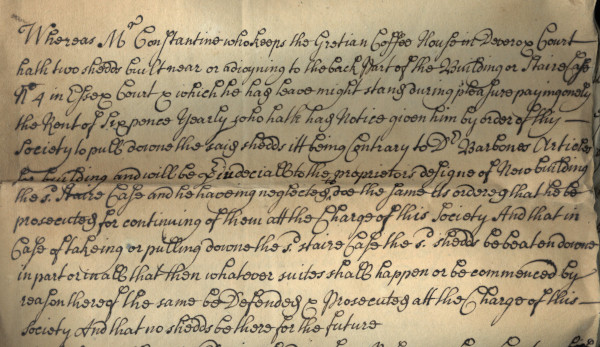 Whereas Mr Constantine who keeps the Gretian Coffee House in Deverox Court
hath two shedds built near or adioyning to the back Part of the Building or Staire Case
No 4 in Essex Court & which he has leave might stand during pleasure paying onely
the Rent of Sixpence Yearly who hath had Notice given him by order of this
Society to pull downe the said shedds itt being Contrary to Dr Barbones Articles
building and will be to the proprietors designe of New building
the sd Staire Case and he haveing neglected doe the same Its ordered that he be
prosecuted for continuing of them att the Charge of this Society And that in
Case of takeing or pulling downe the sd staire Case the sd shedds be beaten downe
in part or in all that then whatever suites shall happen or be commenced by
reason thereof the same be Defended & Prosecuted att the Charge of this
Society And that no shedds be there for the future